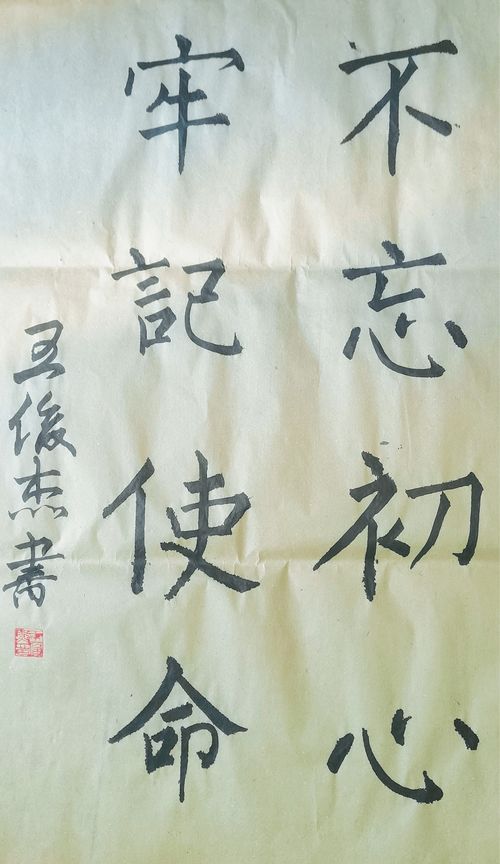 不忘初心
牢記使命
王俊杰書